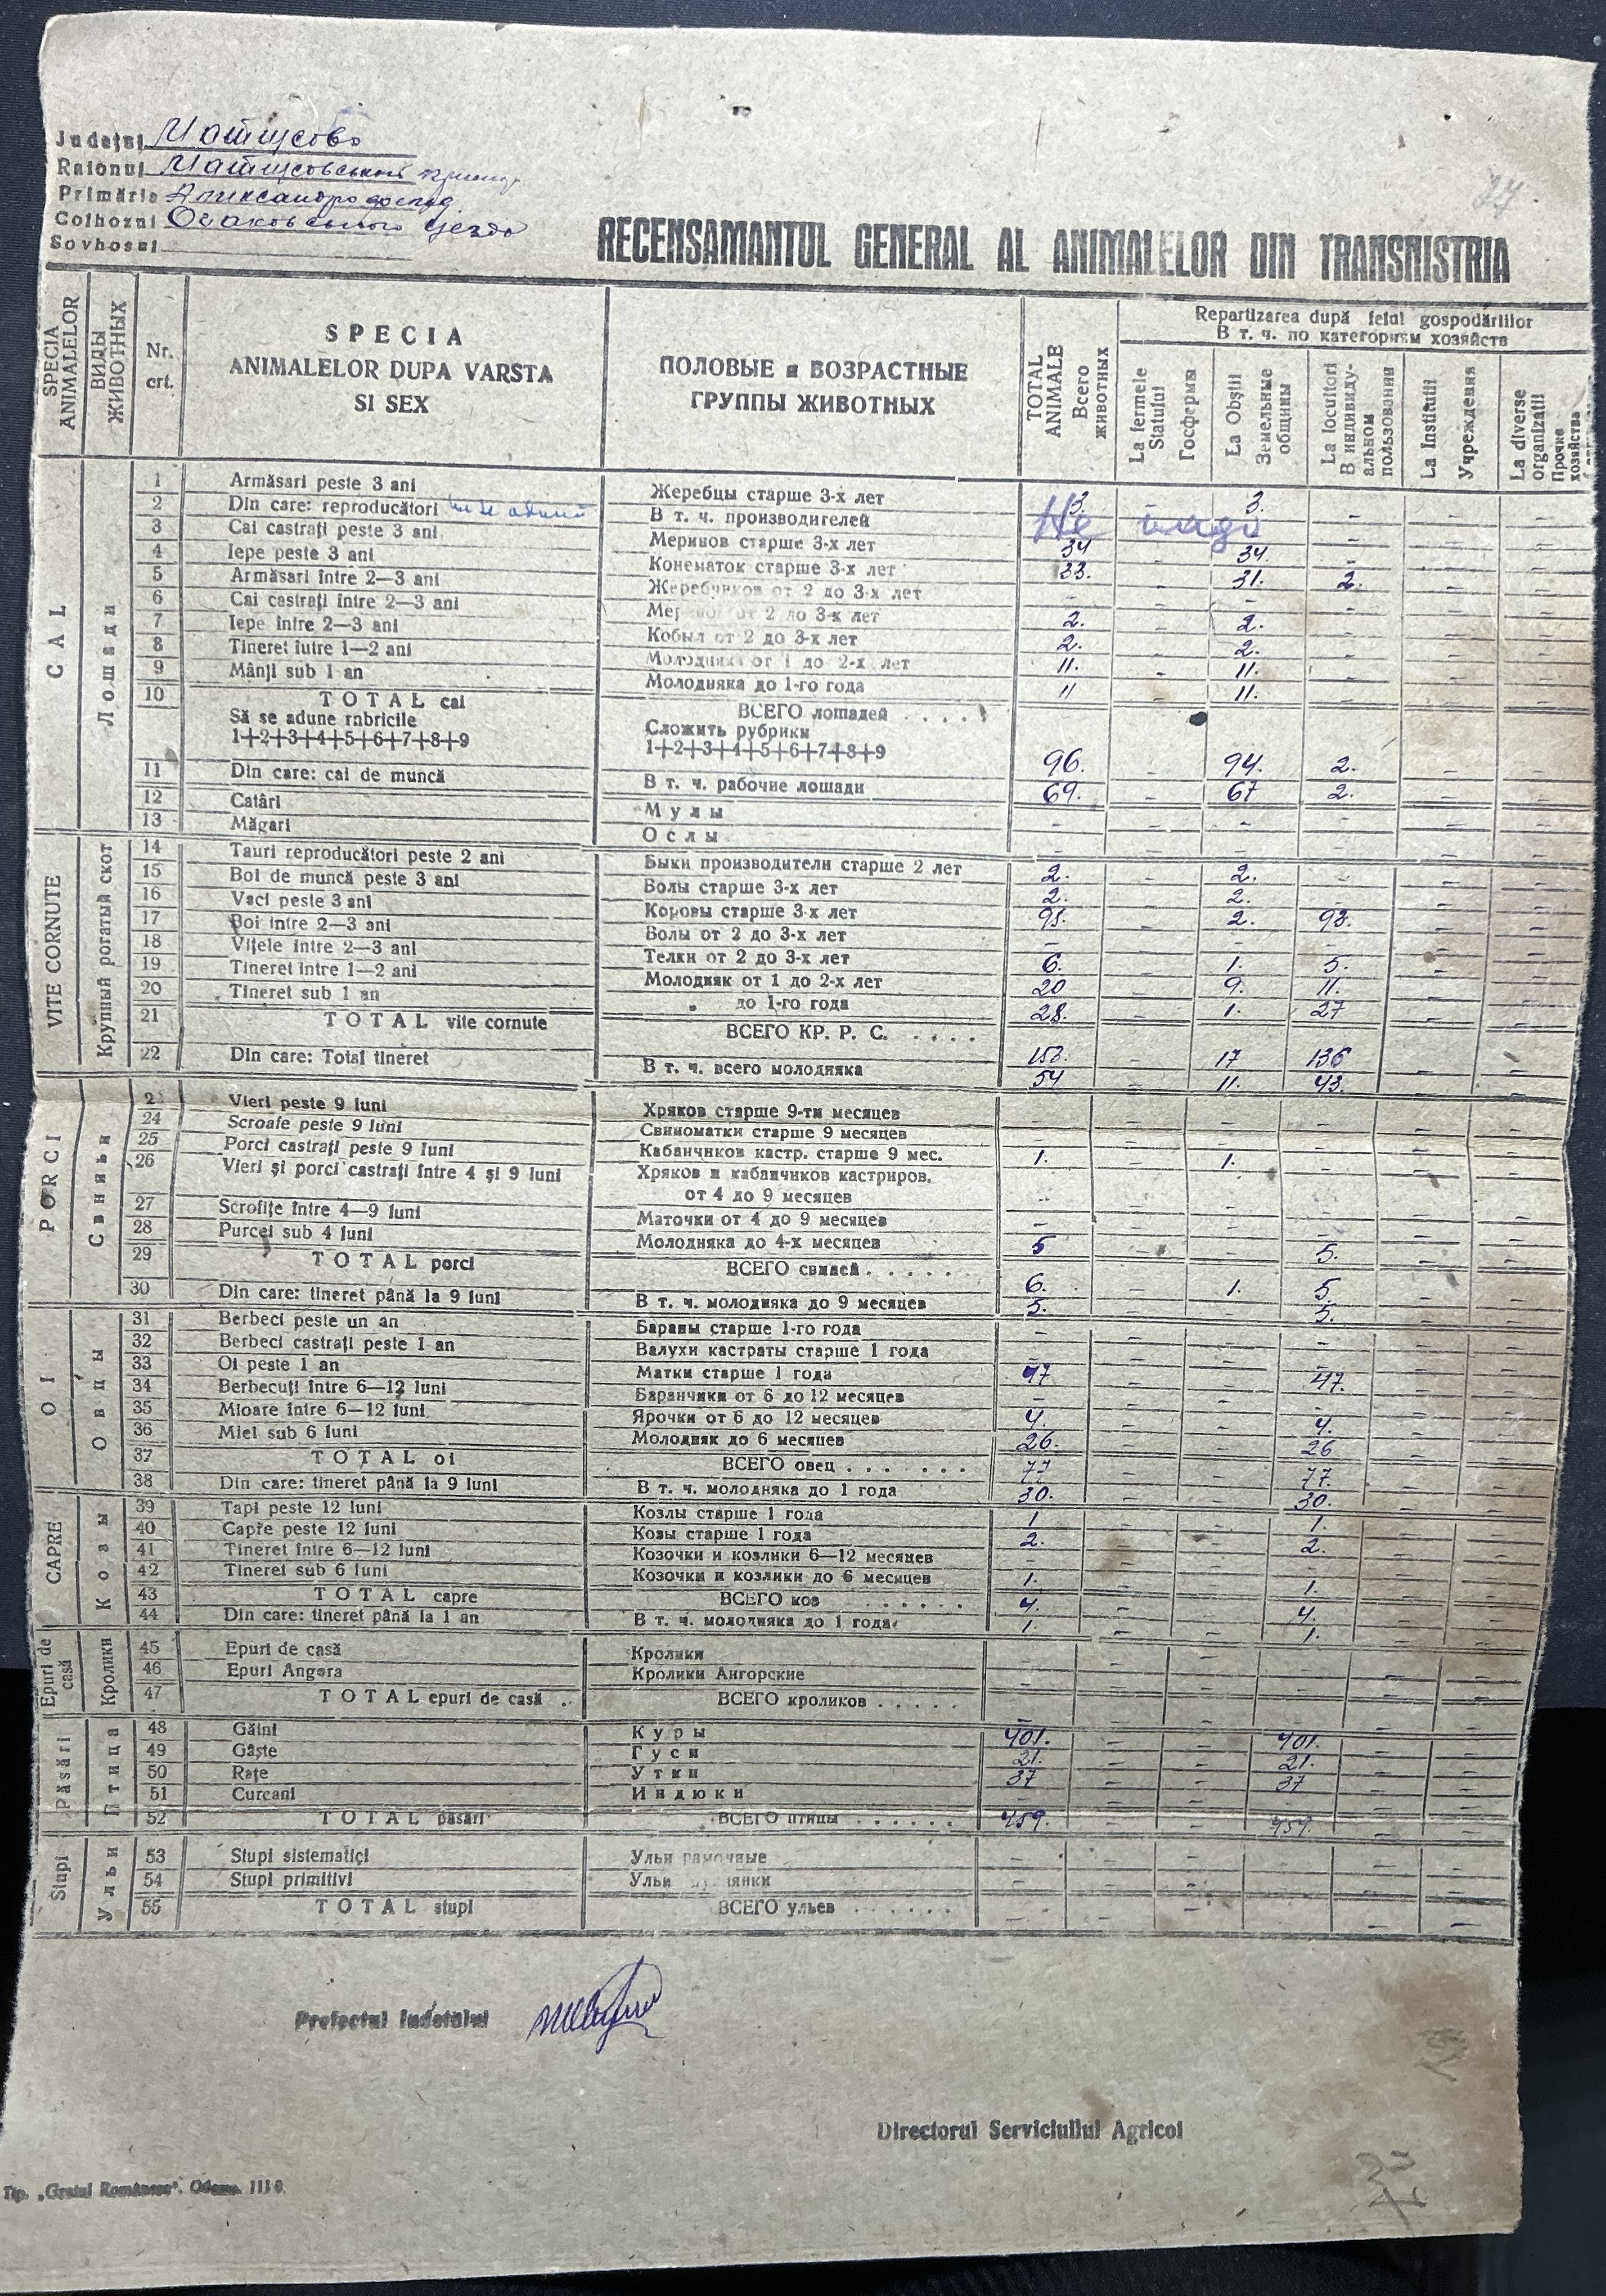 Județul
Raionul
Primăria
Colhozul Очаковського
Sovhosul
RECENSAMANTUL GENERAL AL ANIMALELOR DIN TRANSNISTRIA
SPECIA ANIMALELOR
ВИДЫ ЖИВОТНЫХ
Nr. crt.
SPECIA ANIMALELOR DUPA VARSTA SI SEX
ПОЛОВЫЕ и ВОЗРАСТНЫЕ ГРУППЫ ЖИВОТНЫХ
TOTAL ANIMALE Всего животных
Repartizarea după felul gospodăriilor
В т. ч. по категориям хозяйств
La fermele Statului Госфермы
La Obștii Земельные общины
La locuitori В индивидуальном пользовании
La Instituții Учреждения
La diverse organizații Прочие хозяйства
CAL Лошади
1 Armăsari peste 3 ani Жеребцы старше 3-х лет 3. - 3. - - -
2 Din care: reproducători В т. ч. производителей Не
3 Cai castrați peste 3 ani Меринов старше 3-х лет 34 - 34 - - -
4 Iepe peste 3 ani Конематок старше 3-х лет 33. - 31. 2. - -
5 Armăsari între 2—3 ani Жеребчиков от 2 до 3-х лет - - - - - -
6 Cai castrați între 2—3 ani Меринов от 2 до 3-х лет 2. - 2. - - -
7 Iepe între 2—3 ani Кобыл от 2 до 3-х лет 2. - 2. - - -
8 Tineret iutre 1—2 ani Молодняка от 1 до 2-х лет 11. - 11. - - -
9 Mânji sub 1 an Молодняка до 1-го года 11 - 11. - - -
10 TOTAL cai ВСЕГО лошадей . . . .
Să se adune rnbricile Сложить рубрики
1+2+3+4+5+6+7+8+9 1+2+3+4+5+6+7+8+9 96. - 94. 2. - -
11 Din care: cai de muncă В т. ч. рабочие лошади 69. - 67 2. - -
12 Catâri Мулы - - - - - -
13 Măgari Ослы - - - - - -
VITE CORNUTE Крупный рогатый скот
14 Tauri reproducători peste 2 ani Быки производители старше 2 лет 2. - 2. - - -
15 Boi de muncă peste 3 ani Волы старше 3-х лет 2. - 2. - - -
16 Vaci peste 3 ani Коровы старше 3-х лет 95. - 2. 93. - -
17 Boi între 2—3 ani Волы от 2 до 3-х лет - - - - - -
18 Vițele între 2—3 ani Телки от 2 до 3-х лет 6. - 1. 5. - -
19 Tineret între 1—2 ani Молодняк от 1 до 2-х лет 20 - 9. 11. - -
20 Tineret sub 1 an „ до 1-го года 28. - 1. 27 - -
21 TOTAL vite cornute ВСЕГО КР. Р. С. . . . . 153. - 17 136 - -
22 Din care: Total tineret В т. ч. всего молодняка 54 - 11. 43. - -
PORCI Свиньи
2 Vieri peste 9 luni Хряков старше 9-ти месяцев - - - - - -
24 Scroafe peste 9 luni Свиноматки старше 9 месяцев - - - - - -
25 Porci castrați peste 9 luni Кабанчиков кастр. старше 9 мес. 1. - 1. - - -
26 Vieri și porci castrați între 4 și 9 luni Хряков и кабанчиков кастриров.
от 4 до 9 месяцев - - - - - -
27 Scrofițe între 4—9 luni Маточки от 4 до 9 месяцев - - - - - -
28 Purcei sub 4 luni Молодняка до 4-х месяцев 5 - - 5. - -
29 TOTAL porci ВСЕГО свиней . . . . . 6. - 1. 5. - -
30 Din care: tineret până la 9 luni В т. ч. молодняка до 9 месяцев 5. - - 5. - -
OI Овцы
31 Berbeci peste un an Бараны старше 1-го года - - - - - -
32 Berbeci castrați peste 1 an Валухи кастраты старше 1 года - - - - - -
33 Oi peste 1 an Матки старше 1 года 47 - - 47. - -
34 Berbecuți între 6—12 luni Баранчики от 6 до 12 месяцев - - - - - -
35 Mioare între 6—12 luni Ярочки от 6 до 12 месяцев 4. - - 4. - -
36 Miei sub 6 luni Молодняк до 6 месяцев 26. - - 26 - -
37 TOTAL oi ВСЕГО овец . . . . . . 77 - - 77. - -
38 Din care: tineret până la 9 luni В т. ч. молодняка до 1 года 30. - - 30. - -
CAPRE Козы
39 Tapi peste 12 luni Козлы старше 1 года 1 - - 1. - -
40 Capre peste 12 luni Козы старше 1 года 2. - - 2. - -
41 Tineret între 6—12 luni Козочки и козлики 6—12 месяцев - - - - - -
42 Tineret sub 6 luni Козочки и козлики до 6 месяцев 1. - - 1. - -
43 TOTAL capre ВСЕГО коз . . . . . . 4. - - 4. - -
44 Din care: tineret până la 1 an В т. ч. молодняка до 1 года 1. - - 1. - -
Epuri de casă Кролики
45 Epuri de casă Кролики - - - - - -
46 Epuri Angora Кролики Ангорские - - - - - -
47 TOTAL epuri de casă . ВСЕГО кроликов . . . . . - - - - - -
Păsări Птица
48 Găini Куры 401. - - 401. - -
49 Gâște Гуси 21. - - 21. - -
50 Rațe Утки 37 - - 37 - -
51 Curcani Индюки - - - - - -
52 TOTAL păsări ВСЕГО птицы . . . . . . 459. - - 459. - -
Stupi Ульи
53 Stupi sistematici Ульи рамочные - - - - - -
54 Stupi primitivi Ульи - - - - - -
55 TOTAL stupi ВСЕГО ульев . . . . . . - - - - - -
Prefectul Județului
Directorul Serviciului Agricol
Tip. „Graiul Românesc". Odessa.